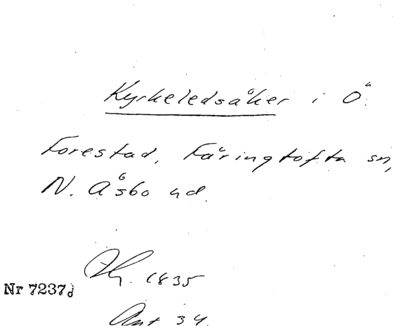 Kyrkeledsåker i Ö.
Forestad, Färingtofta sn,
N. Åsbo hd.
1835
Nr 7237
Ant 34.